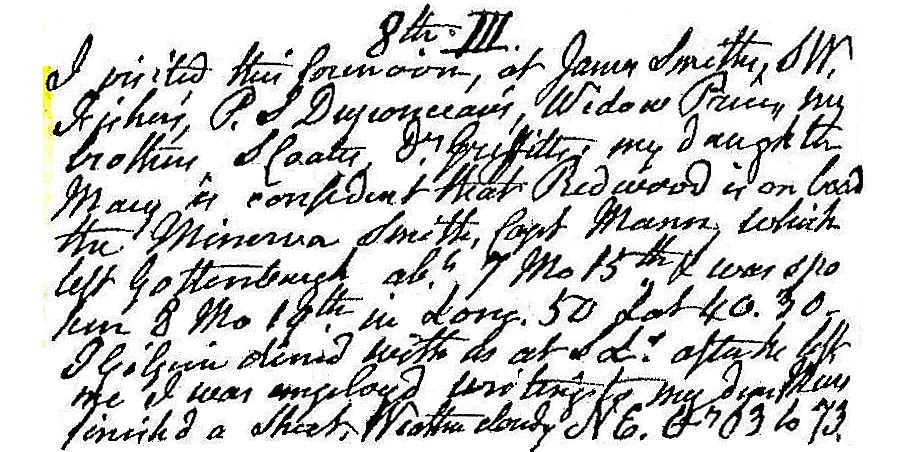 8th. III.
I visited this forenoon, at James Smiths, S W.
Fishers, P. S Duponceau's, Widow Prices, my
brothers, S Coates, Dr. Griffitts; my daughter
Mary is confident that Redwood is on board
the Minerva Smith, Capt Mann, which
left Gottenburgh abt. 7 Mo 15th & was spo
ken 8 Mo 19th. in Long. 50 Lat 40.30.
J Gilpin dined with us at 2 after he left
me I was employd writing to my dear
finished a sheet. Weather cloudy N.E. 63 to 73.